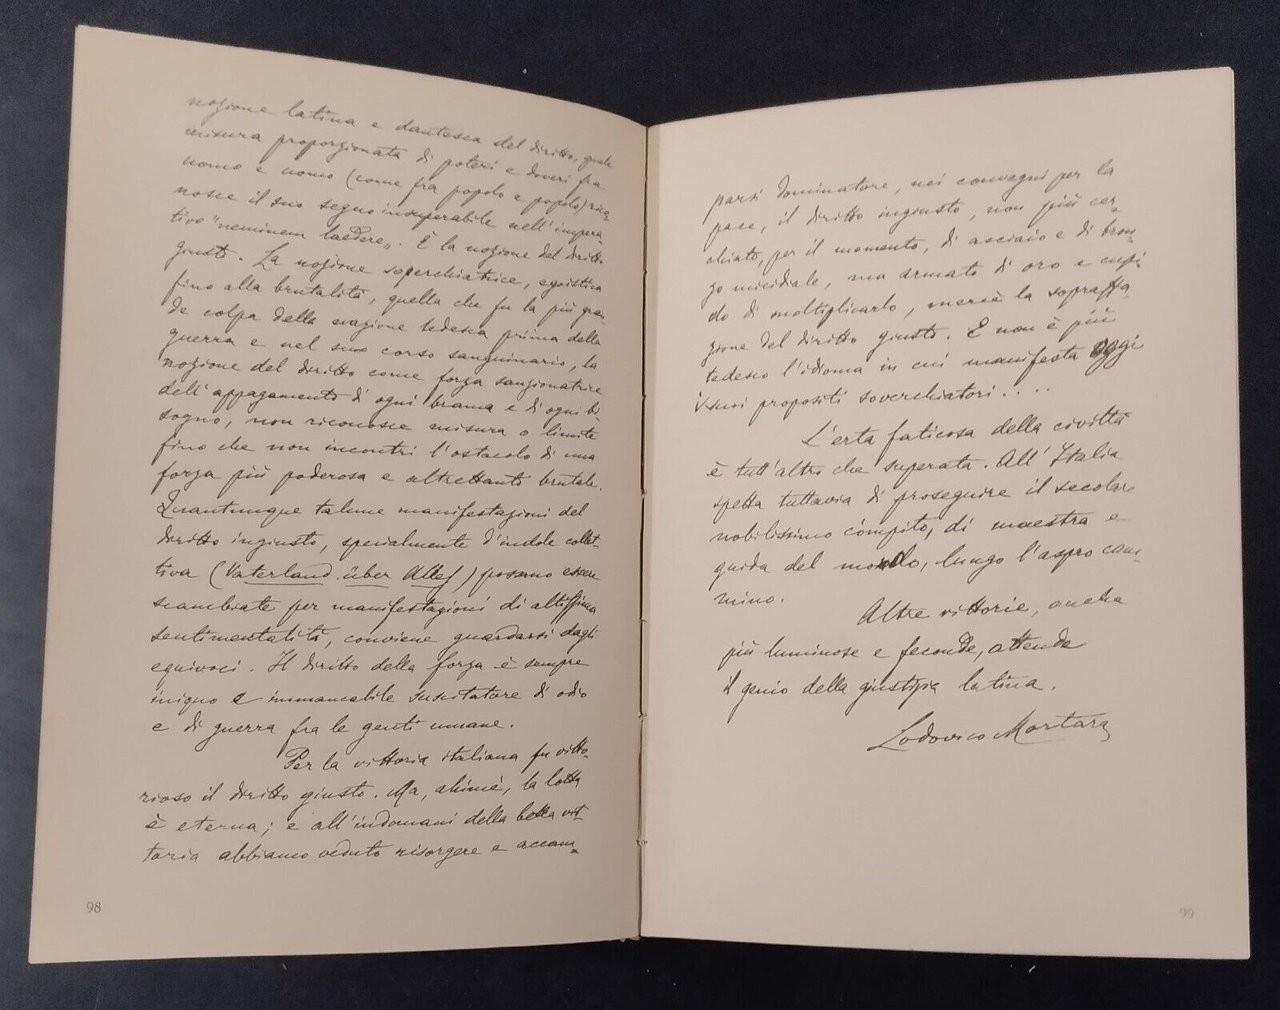 nozione latina e dantesca del diritto, quale
misura proporzionata di poteri e doveri fra
uomo e uomo (come fra popolo e popolo) rico
nosce il suo segno insuperabile nell'impera-
tivo "neminem laedere„. È la nozione del diritto
giusto. La nozione soperchiatrice, egoistica
fino alla brutalità, quella che fu la più gran-
de colpa della nazione tedesca prima della
guerra e nel suo corso sanguinario, la
nozione del diritto come forza sanzionatrice
dell'appagamento di ogni brama e di ogni bi
sogno, non riconosce misura o limite
fino che non incontri l'ostacolo di una
forza più poderosa e altrettanto brutale.
Quantunque talune manifestazioni del
diritto ingiusto, specialmente d'indole collet-
tiva (Vaterland über Alles) possano essere
scambiate per manifestazioni di altissima
sentimentalità, conviene guardarsi dagli
equivoci. Il diritto della forza è sempre
iniquo e immancabile suscitatore di odio
e di guerra fra le genti umane.
Per la vittoria italiana fu vitto-
rioso il diritto giusto. Ma, ahimè, la lotta
è eterna; e all'indomani della bella vit-
toria abbiamo veduto risorgere e accam-
98
parsi dominatore, nei convegni per la
pace, il diritto ingiusto, non più cer-
chiato, per il momento, di acciaio e di bron-
zo micidiale, ma armato di oro e cupi-
do di moltiplicarlo, mercè la sopraffa-
zione del diritto giusto. E non è più
tedesco l'idioma in cui manifesta oggi
i suoi propositi soverchiatori....
L'erta faticosa della civiltà
è tutt'altro che superata. All'Italia
spetta tuttavia di proseguire il secolare
nobilissimo cómpito, di maestra e
guida del mondo, lungo l'aspro cam-
mino.
Altre vittorie, anche
più luminose e feconde, attende
il genio della giustizia latina.
Lodovico Mortara
99